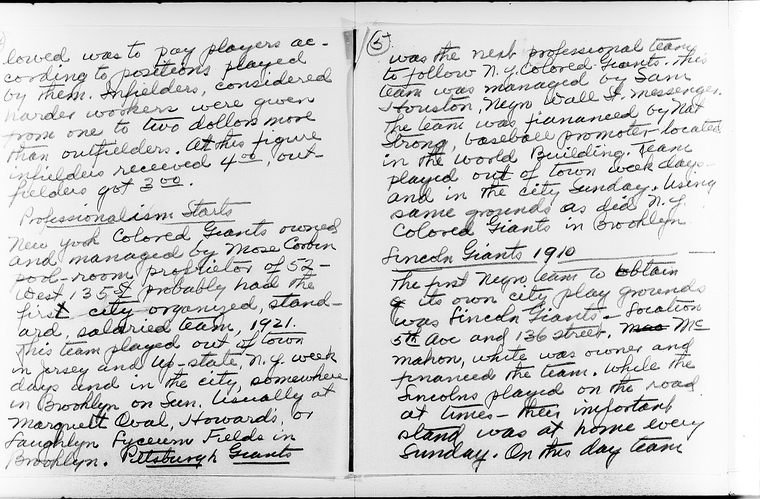 lowed was to pay players ac-
cording to positions played
by them. Infielders, considered
harder workers were given
from one to two dollars more
than outfielders. At this figure
infielders received 4.00, out-
fielders got 3.00.
Professionalism Starts
New York Colored Giants owned
and managed by Mose Corbin
pool-room proprietor of 52-
West 135 St probably had the
first city organized, stand-
ard, salaried team, 1921.
This team played out of town
in Jersey and up-state, N.Y. week
days and in the city, somewhere
in Brooklyn on Sun. Usually at
Marquett Oval, Howards, or
Laughlyn Lyceum Fields in
Brooklyn. Pittsburgh Giants
5
was the next professional team
to follow N.Y. Colored Giants. This
team was managed by Sam
Houston, Negro Wall St. messenger.
The team was fiananced by Nat
Strong, baseball promoter located
in the World Building. Team
played out of town week days-
and in the city Sunday. Using
same grounds as did N.Y.
Colored Giants in Brooklyn.
Lincoln Giants 1910
The first Negro team to obtain
its own city play grounds
was Lincoln Giants - Location
5th Ave and 136 street. Mc
mahon, white was owner and
financed the team. While the
Lincolns played on the road
at times - their important
stand was at home every
Sunday. On this day team